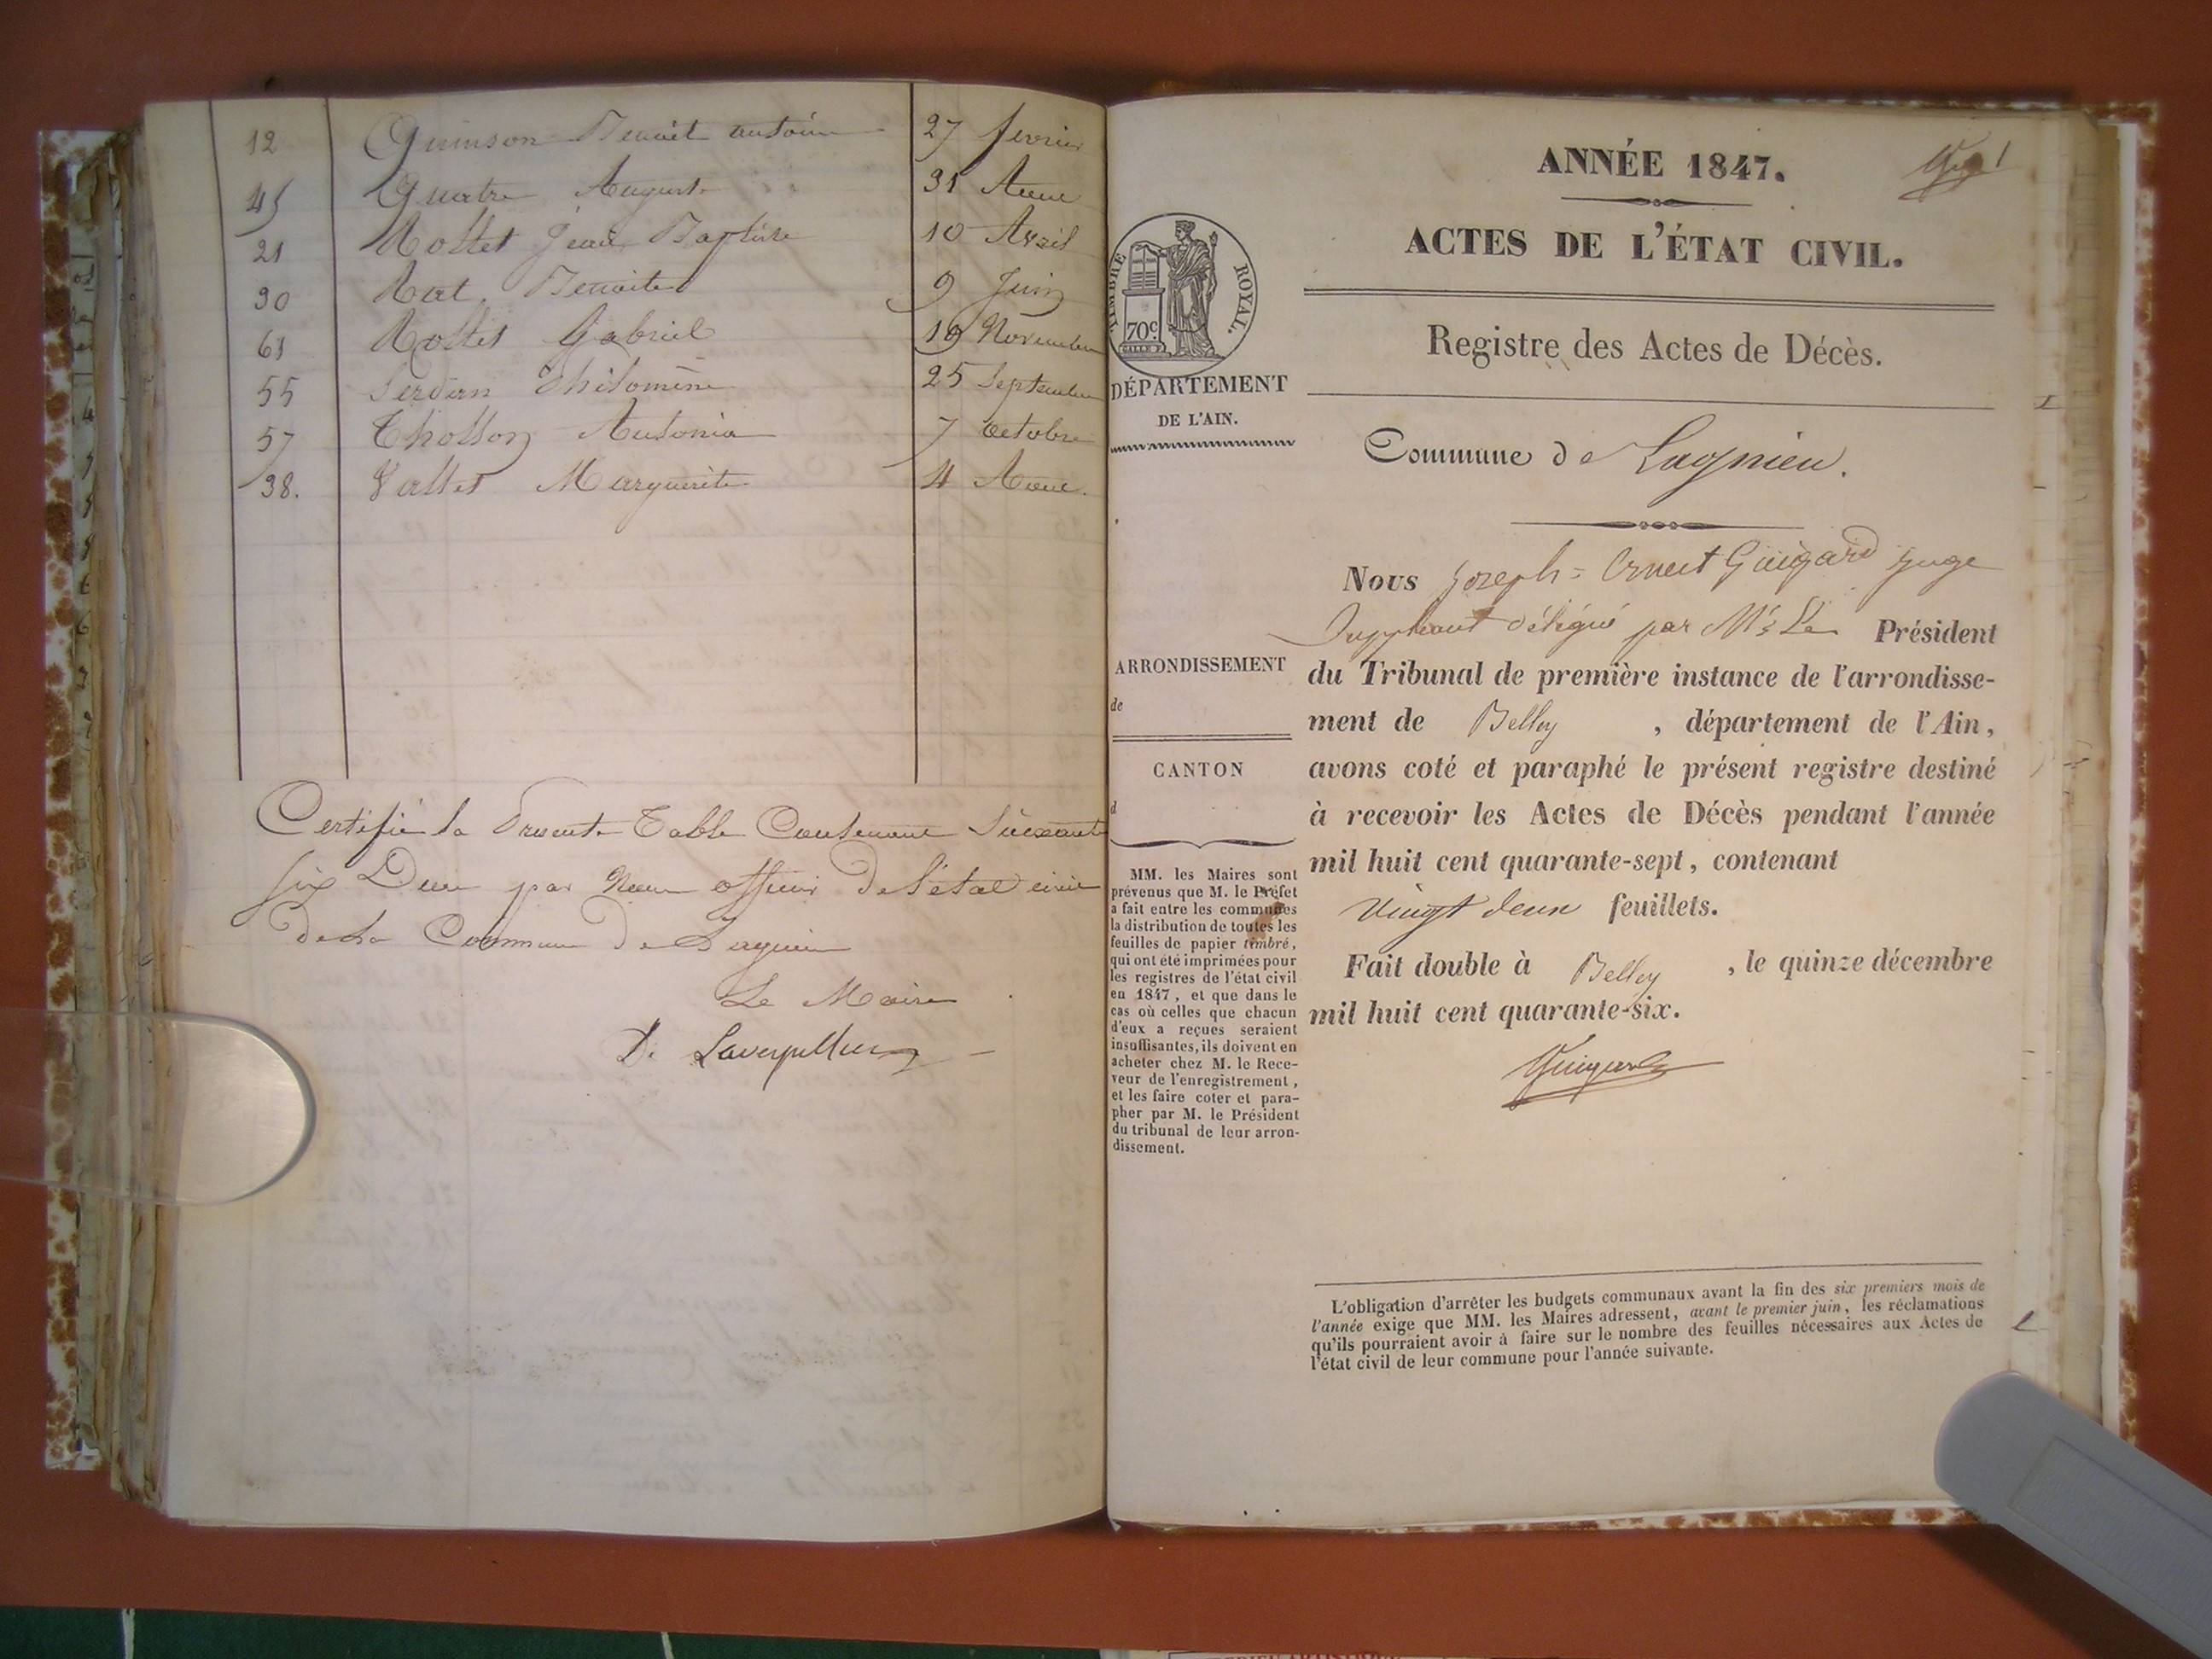 12 Quinson Benoit antoine 27 fevrier
45 Quatre August 31 Aout
21 Rollet Jean Baptiste 10 Avril
30 Rat Benoite 9 Juin
61 Rollet Gabriel 19 Novembre
55 Serdon Philomène 25 Septembre
57 Thollon Antonia 7 Octobre
38. Vallet Marguerite 4 Aout.
Certifié la Presente Table Contenant Soixante
six Deces par Nous officier De l'état civil
De La Commune De Lagnieu
Le Maire
D. Laverpilliere
ANNÉE 1847.
1
ACTES DE L'ÉTAT CIVIL.
Registre des Actes de Décès.
TIMBRE ROYAL.
70c
DÉPARTEMENT
DE L'AIN.
ARRONDISSEMENT
de
CANTON
d
MM. les Maires sont
prévenus que M. le Préfet
a fait entre les communes
la distribution de toutes les
feuilles de papier timbré,
qui ont été imprimées pour
les registres de l'état civil
en 1847, et que dans le
cas où celles que chacun
d'eux a reçues seraient
insuffisantes, ils doivent en
acheter chez M. le Rece-
veur de l'enregistrement,
et les faire coter et para-
pher par M. le Président
du tribunal de leur arron-
dissement.
Commune de Lagnieu.
Nous Joseph-Ernest Guigard Juge
Suppléant délégué par Mr Le Président
du Tribunal de première instance de l'arrondisse-
ment de Belley , département de l'Ain,
avons coté et paraphé le présent registre destiné
à recevoir les Actes de Décès pendant l'année
mil huit cent quarante-sept, contenant
Vingt deux feuillets.
Fait double à Belley , le quinze décembre
mil huit cent quarante-six.
Guigard
L'obligation d'arrêter les budgets communaux avant la fin des six premiers mois de
l'année exige que MM. les Maires adressent, avant le premier juin, les réclamations
qu'ils pourraient avoir à faire sur le nombre des feuilles nécessaires aux Actes de
l'état civil de leur commune pour l'année suivante.